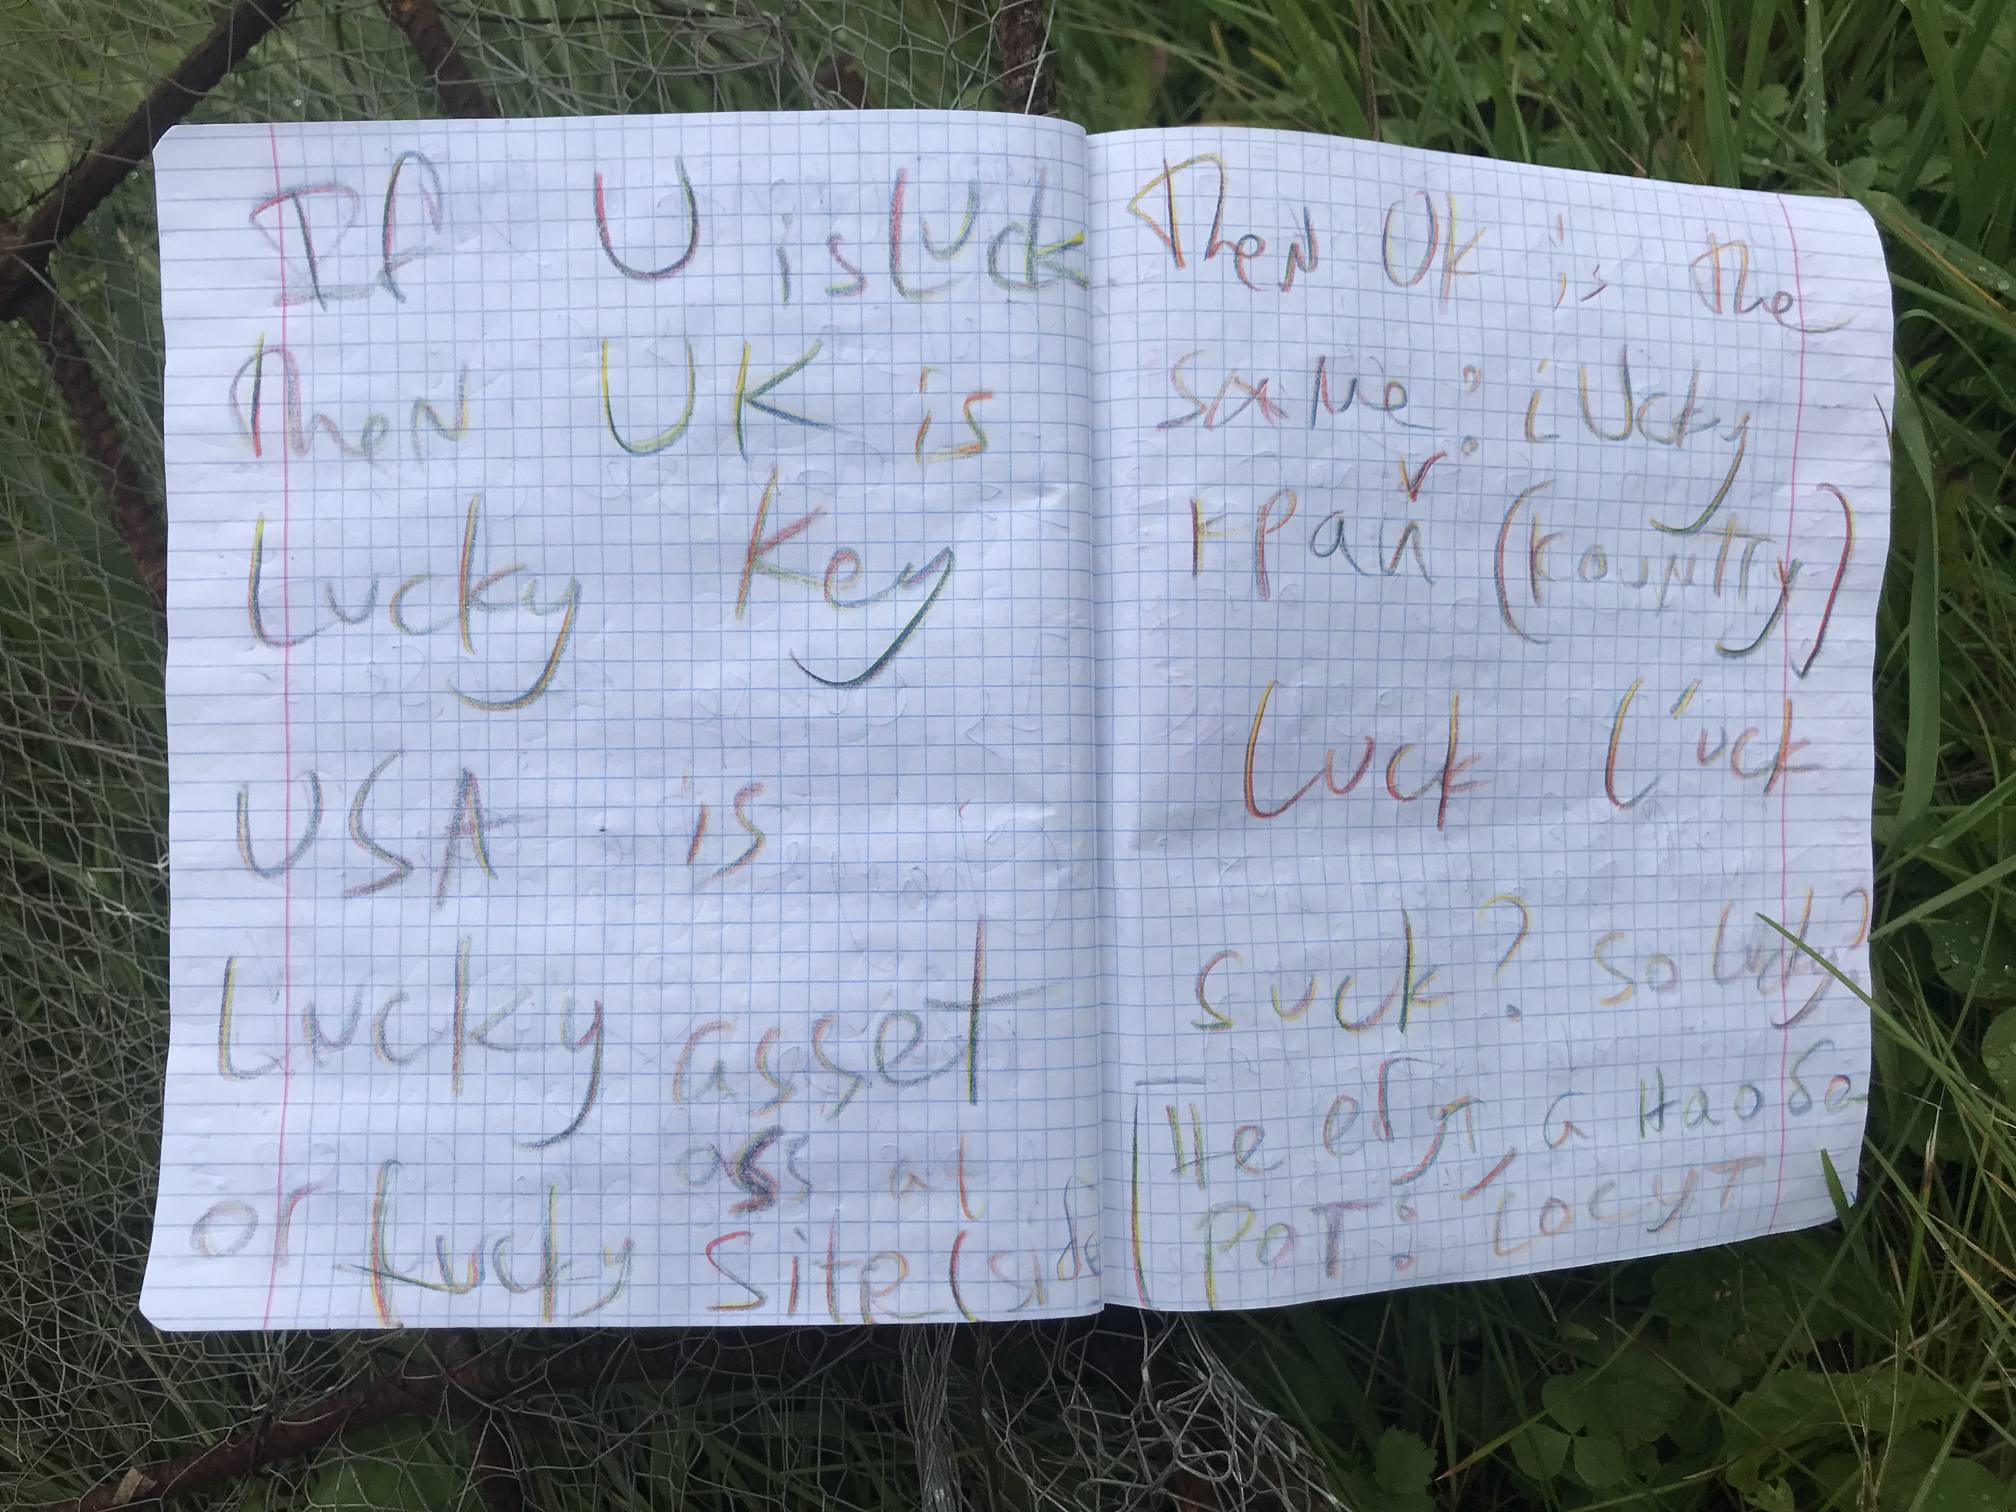 If U is Luck
Then UK is
Lucky Key
USA is
Lucky asset
ass at
or Lucky Site (side
Then UK is the
same: lucky
край (kountry)
Luck L'uck
suck? So lucky?
Не ебут, а наобо
рот: сосут